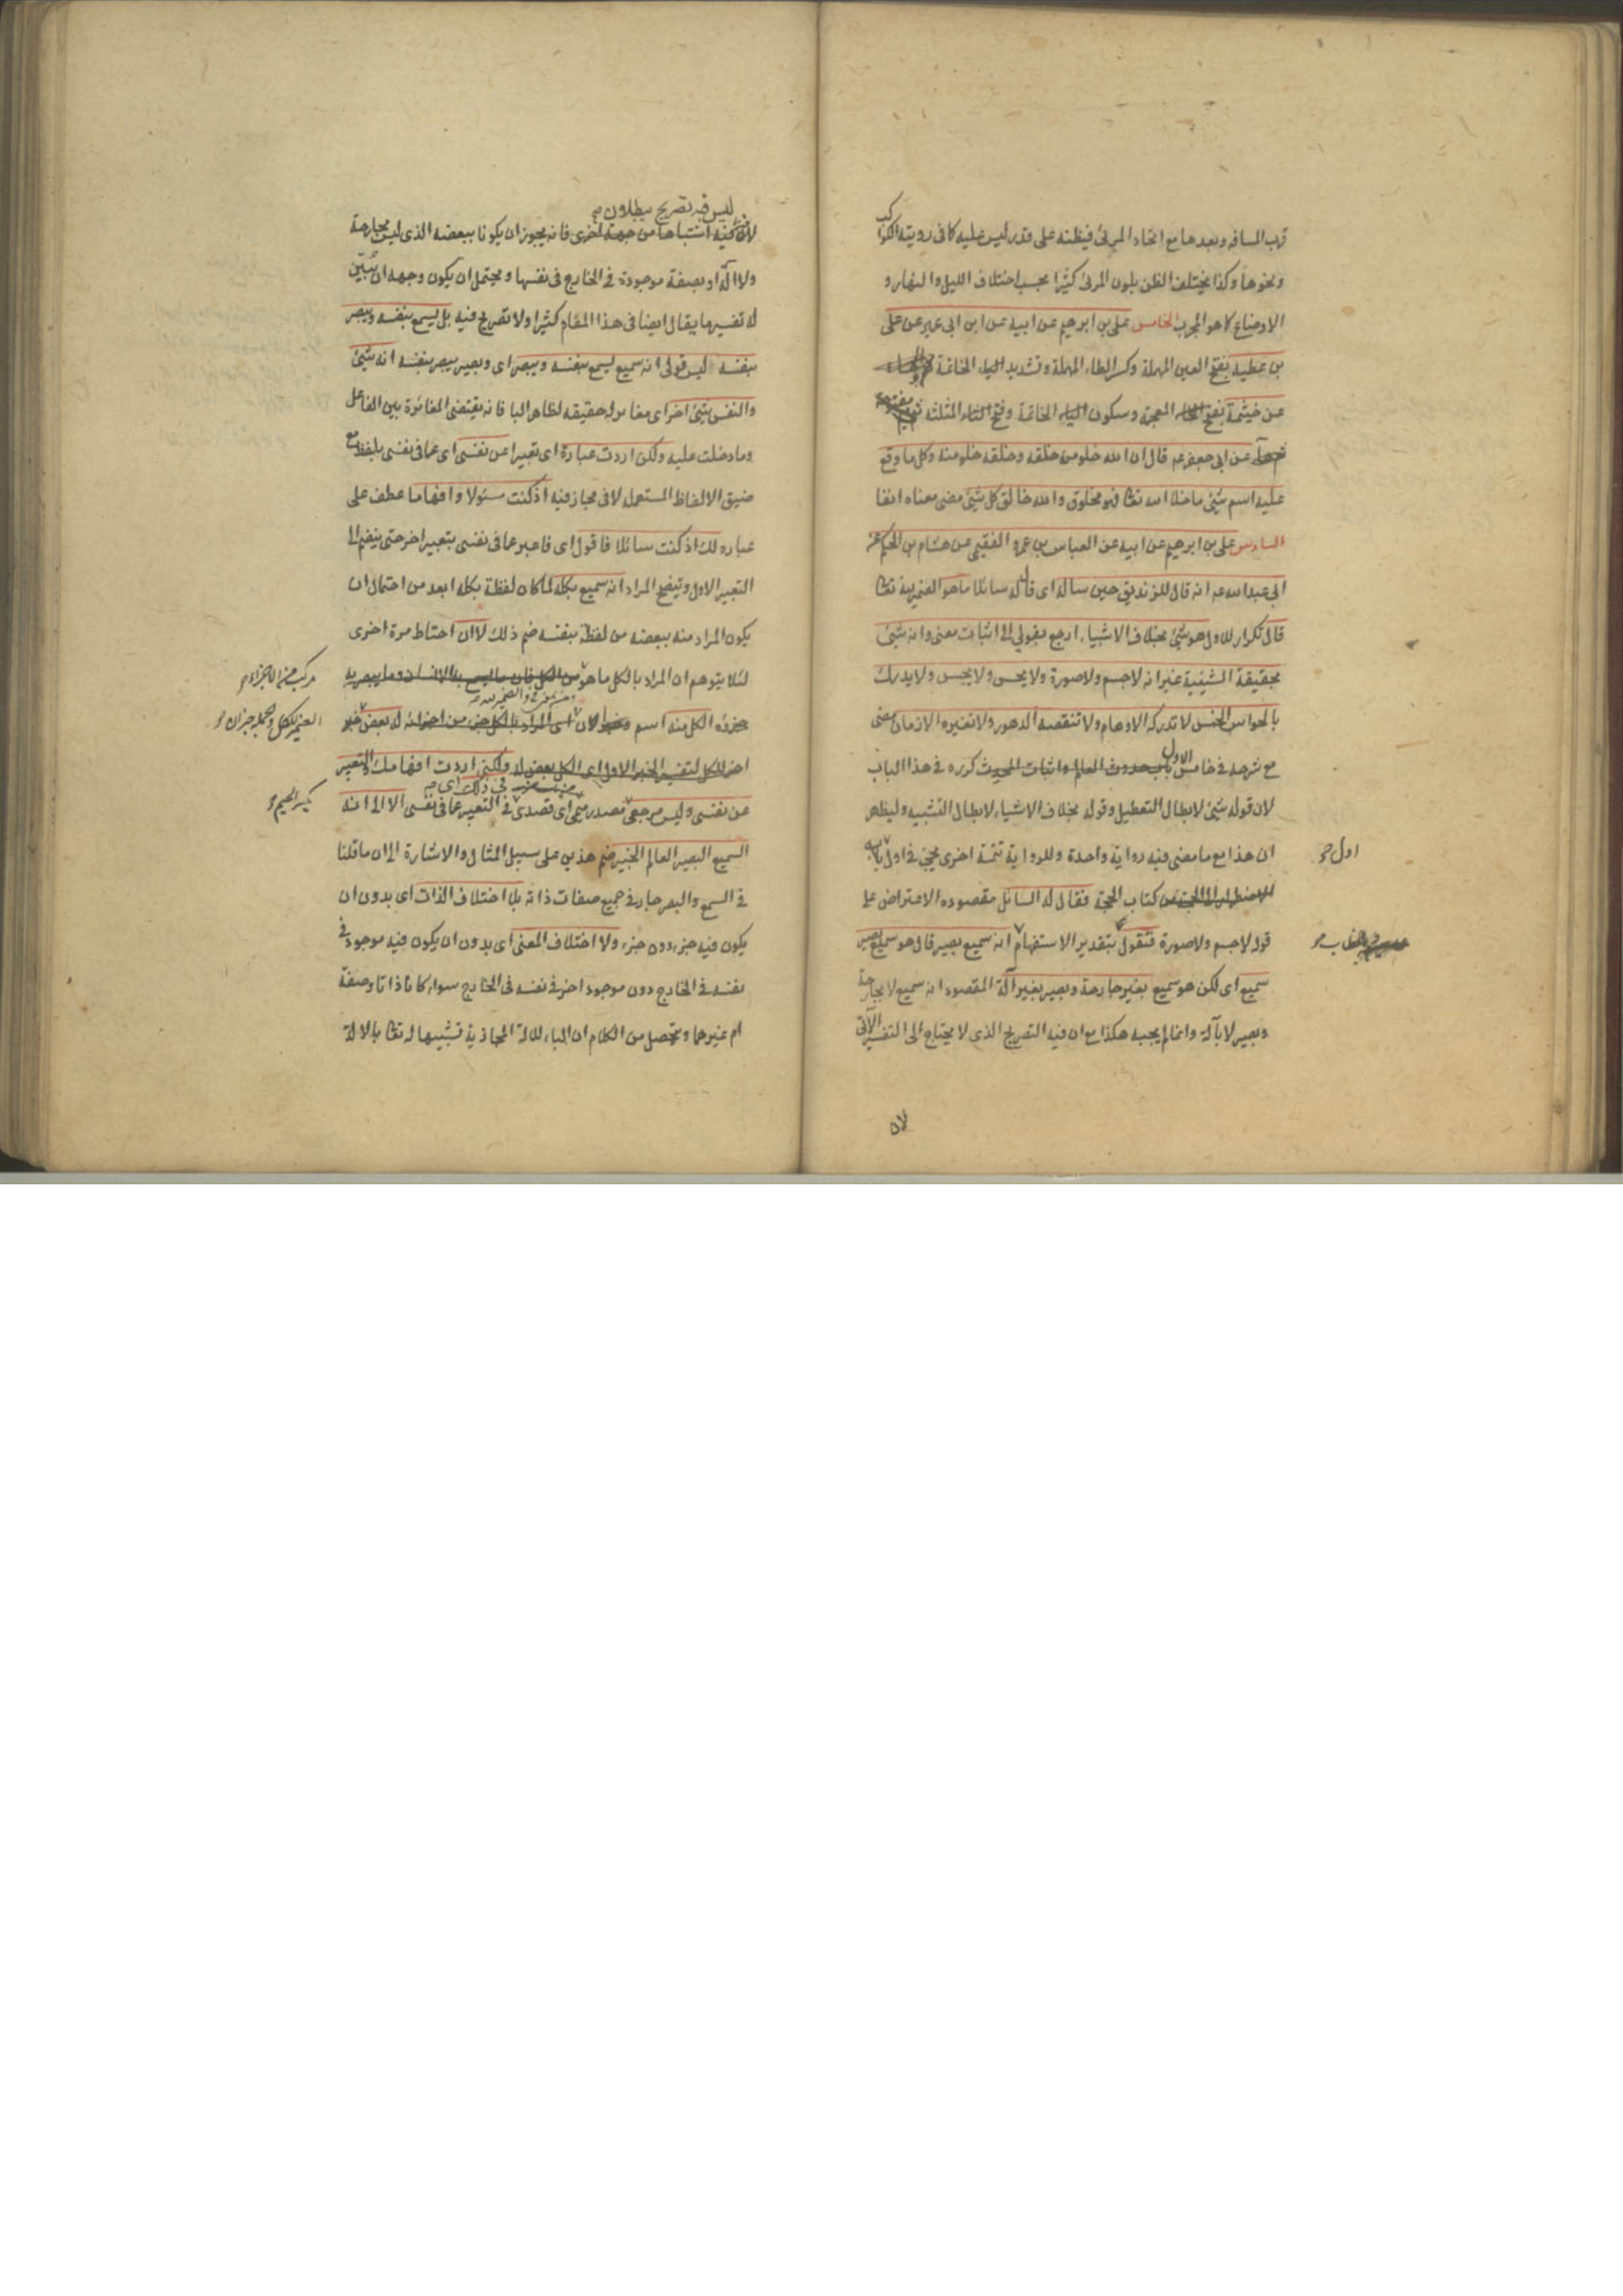 قرب المسافه وبعدها مع اتحاد المرئى فيظنه على قدر ليس عليه كما فى رويته الكواكب
ونحوها وكذا يختلف الظن بلون المرئى كثيرا بحسب اختلاف الليل والنهار و
الاوضاع كما هو المجرب الخامس على بن ابرهيم عن ابيه عن ابن ابى عمير عن على
بن عطيه بفتح العين المهملة وكسر الطاء المهملة وتشديد الياء الخاتمة
عن خيثمة بفتح الخاء المعجمة وسكون الياء الخاتمة وفتح الثاء المثلثه
عن ابى جعفر عه قال ان الله خلو من خلقه وخلقه خلو منه وكل ما وقع
عليه اسم شئ ما خلا الله تعا فهو مخلوق والله خالق كل شئ مضى معناه انفا
السادس على بن ابرهيم عن ابيه عن العباس بن عمرو الفقيمى عن هشام بن الحكم عن
ابى عبد الله عه انه قال للزنديق حين ساله اى قال له سائلا ما هو الضمير لله تعا
قال تكرار للاول هو شئ بخلاف الاشياء ارجع بقولى الى اثبات معنى وانه شئ
بحقيقة الشيئية غير انه لا جسم ولا صورة ولا يحس ولا يجس ولا يدرك
بالحواس الخمس لا تدركه الاوهام ولا تنقصه الدهور ولا تغيره الازمان مضى
مع شرحه فى خامس الاول باب حدوث العالم واثبات المحدث كرره فى هذا الباب
لان قوله شئ لابطال التعطيل وقوله بخلاف الاشياء لابطال التشبيه وليظهر
ان هذا مع ما مضى فيه رواية واحدة وللرواية تتمة اخرى تجئ فى اول باب
اول
الاضطرار الى الحجة من كتاب الحجة فقال له السائل مقصوده الاعتراض على
قوله لا جسم ولا صورة فتقول بتقدير الاستفهام انه سميع بصير قال هو سميع بصير
سميع اى لكن هو سميع بغير جارحة وبصير بغير آلة المقصود انه سميع لا بجارحة
وبصير لا بآلة وانما لم يجبه هكذا مع ان فيه التصريح الذى لا يحتاج الى التفسير الآتى
لان
ليس فيه تصريح ببطلان
لان فيه اشتباها من جهة اخرى فانه يجوز ان يكونا ببعضه الذى ليس بجارحة
ولا آلة او بصفة موجودة فى الخارج فى نفسها ويحتمل ان يكون وجهه ان يتبين
له تفسير ما يقال ايضا فى هذا المقام كثيرا ولا تصريح فيه بل يسمع بنفسه ويبصر
بنفسه ليس قولى انه سميع يسمع بنفسه ويبصر اى وبصير يبصر بنفسه انه شئ
والنفس شئ اخر اى مغاير له حقيقه لظاهر الباء فانه يقتضى المغائرة بين الفاعل
وما دخلت عليه ولكن اردت عبارة اى تعبيرا عن نفسى اى عما فى نفسى بلفظ مع
ضيق الالفاظ المستعمله لا فى مجاز فيه اذ كنت مسئولا وافهاما عطف على
عبارة لك اذ كنت سائلا فاقول اى فاعبر عما فى نفسى بتعبير اخر حتى ينضم الى
التعبير الاول ويتضح المراد انه سميع بكله لما كان لفظة بكله ابعد من احتمال ان
يكون المراد منه ببعضه من لفظة بنفسه ضم ذلك لا ان احتاط مرة اخرى
لئلا يتوهم ان المراد بالكل ما هو من الكل فان ما يسمع به الانسان وما يبصر به
مركب من الاجزاء
جزؤه الكل منه اسم لان اى المراد بالكل جزء من اجزائه له بعض خبر
الضمير للكل والجملة خبر ان
اخر للكل لتفسير الخبر الاول اى الكل بعض له ولكنى اردت افهامك والتعبير
عن نفسى وليس مرجعى مصدر ميمى اى قصدى فى ذلك اى فى التعبير عما فى نفسى الا الى انه
بكسر الجيم
السميع البصير العالم الخبير ضم هذين على سبيل المثال والاشارة الى ان ما قلنا
فى السمع والبصر جار فى جميع صفات ذاته بلا اختلاف الذات اى بدون ان
يكون فيه جزء دون جزء ولا اختلاف المعنى اى بدون ان يكون فيه موجود فى
نفسه فى الخارج دون موجود اخر فى نفسه فى الخارج سواء كانا ذاتا وصفة
ام غيرهما ويتحصل من الكلام ان الباء للالة المجازية تشبيها له تعا بالالة